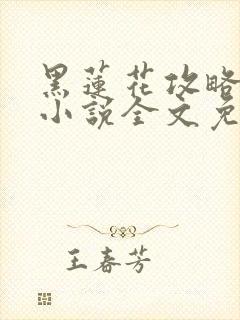 黑蓮花攻略
小說全文免
王春芳